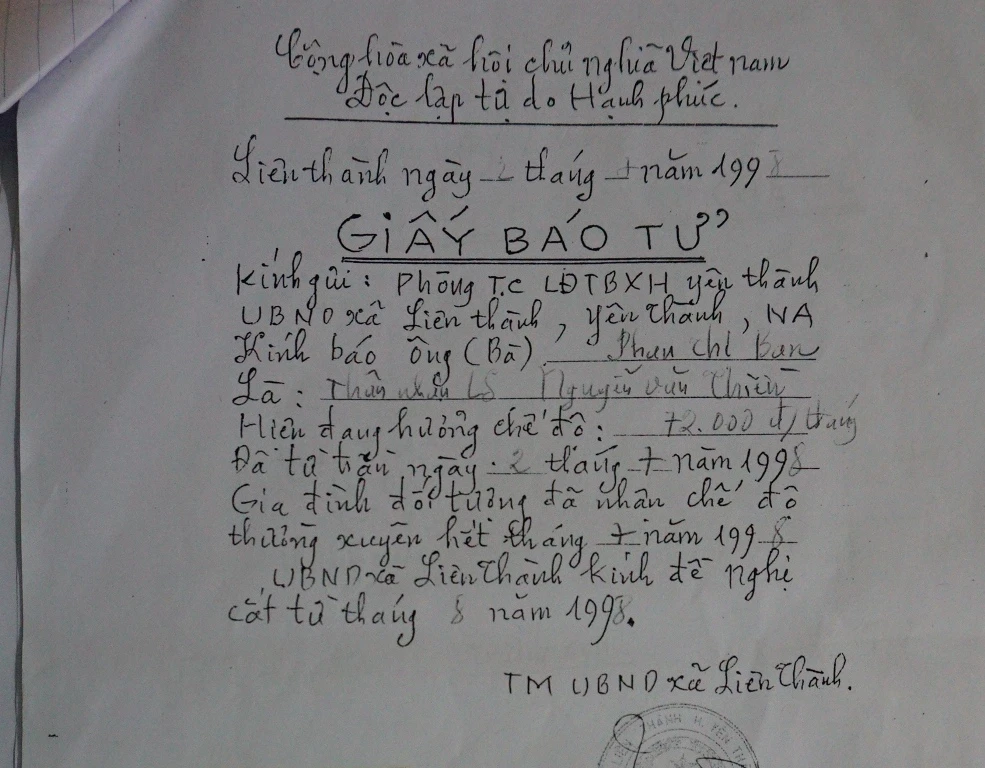 Cộng hòa xã hôi chủ nghiã Việt nam
Độc lập tự do Hạnh phúc.
Liên thành ngày 2 tháng 7 năm 1998
GIẤY BÁO TỬ
Kính gửi: Phòng T.C LĐTBXH yên thành
UBND xã Liên thành, yên thành, NA
Kính báo ông (Bà) Phan chí Ban
Là: Thân nhân LS Nguyễn văn Thiền
Hiên đang hưởng chế đô: 72.000 đ/tháng
Đã từ trần ngày 2 tháng 7 năm 1998
Gia đình đối tượng đã nhân chế đô
thường xuyên hết tháng 7 năm 1998
UBND xã Liên Thành kính đề nghị
cắt từ tháng 8 năm 1998.
TM UBND xã Liên Thành.
THÀNH H. YÊN